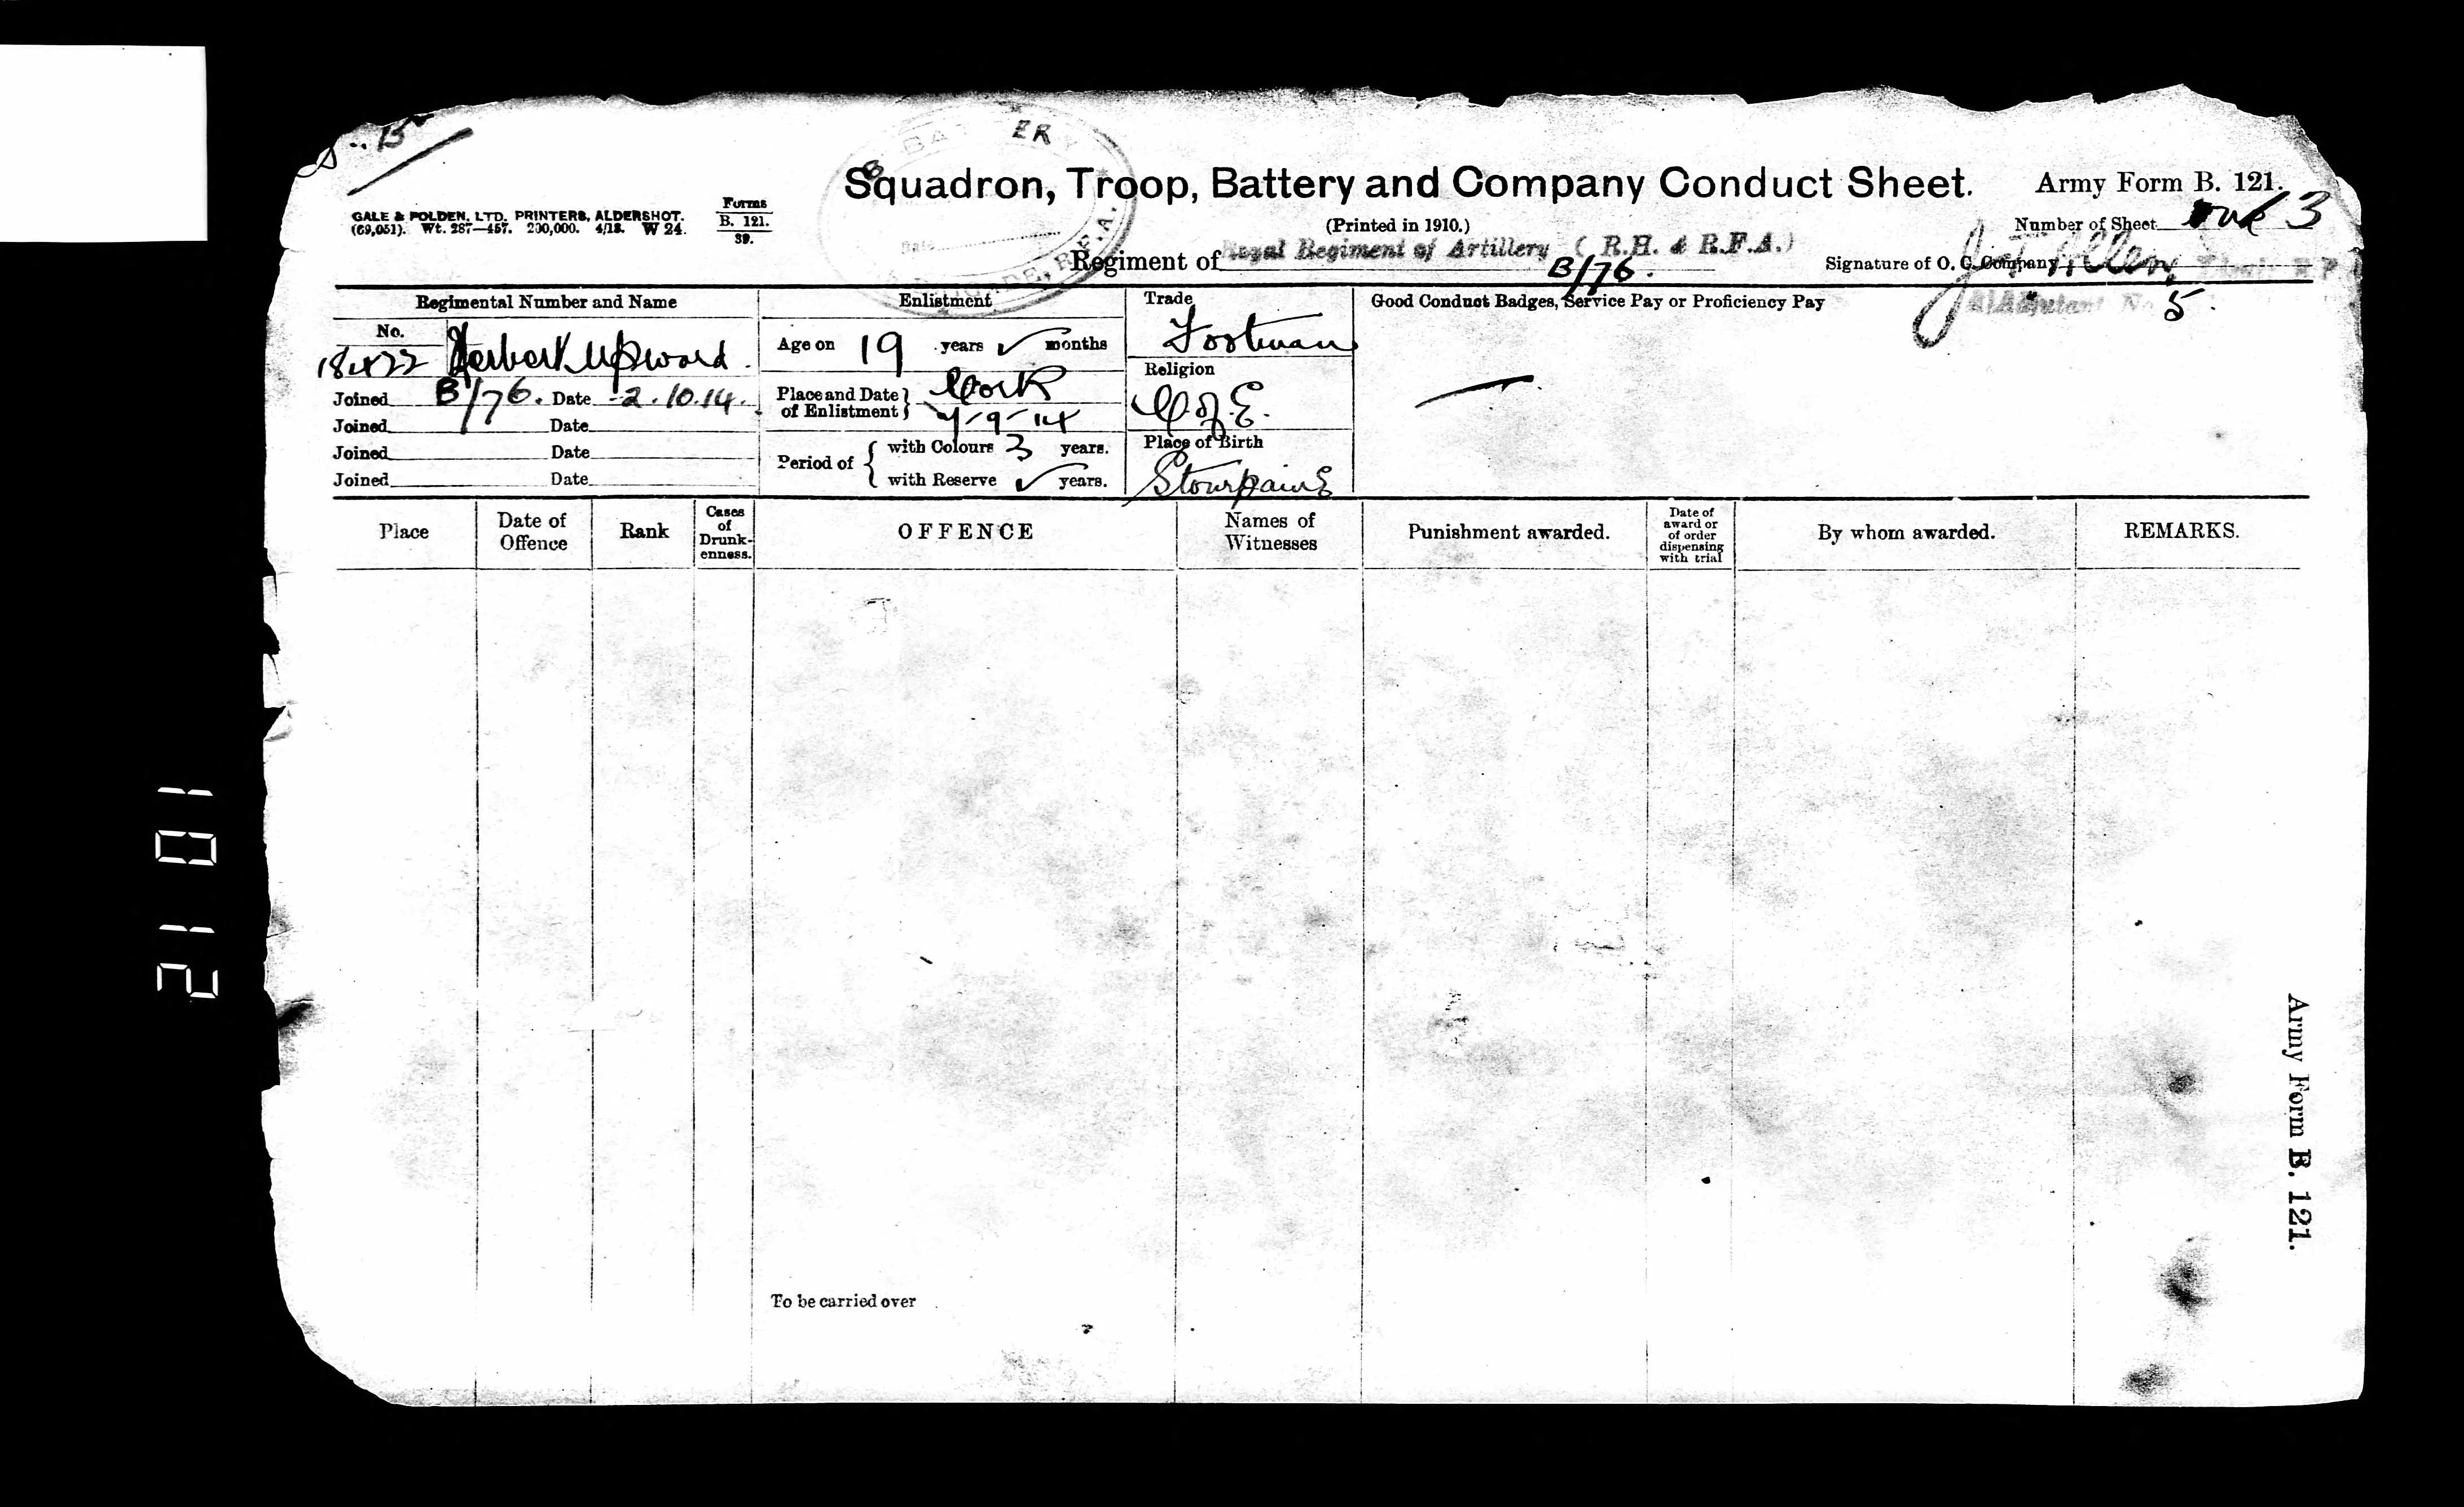 B
BATTERY
Squadron, Troop, Battery and Company Conduct Sheet.
Army Form B. 121.
GALE & POLDEN, LTD. PRINTERS, ALDERSHOT.
(69,051). Wt. 287—457. 200,000. 4/13. W 24.
Forms
B. 121.
39.
(Printed in 1910.)
Number of Sheet 3
Date
R.F.A.
Regiment of Royal Regiment of Artillery (R.H. & R.F.A.)
B/76.
Signature of O. C. Company Allen
Adjutant No. 5.
Regimental Number and Name
Enlistment
Trade
Good Conduct Badges, Service Pay or Proficiency Pay
No.
18422 Herbert Upward.
Age on 19 years ✓ months
Footman
Religion
C. of E.
Joined B/76. Date 2.10.14.
Joined Date
Joined Date
Joined Date
Place and Date of Enlistment } Cork
-9-14
Period of { with Colours 3 years.
with Reserve ✓ years.
Place of Birth
Stourpaine
Place
Date of Offence
Rank
Cases of Drunk-enness.
OFFENCE
Names of Witnesses
Punishment awarded.
Date of award or of order dispensing with trial
By whom awarded.
REMARKS.
To be carried over
Army Form B. 121.
21 01